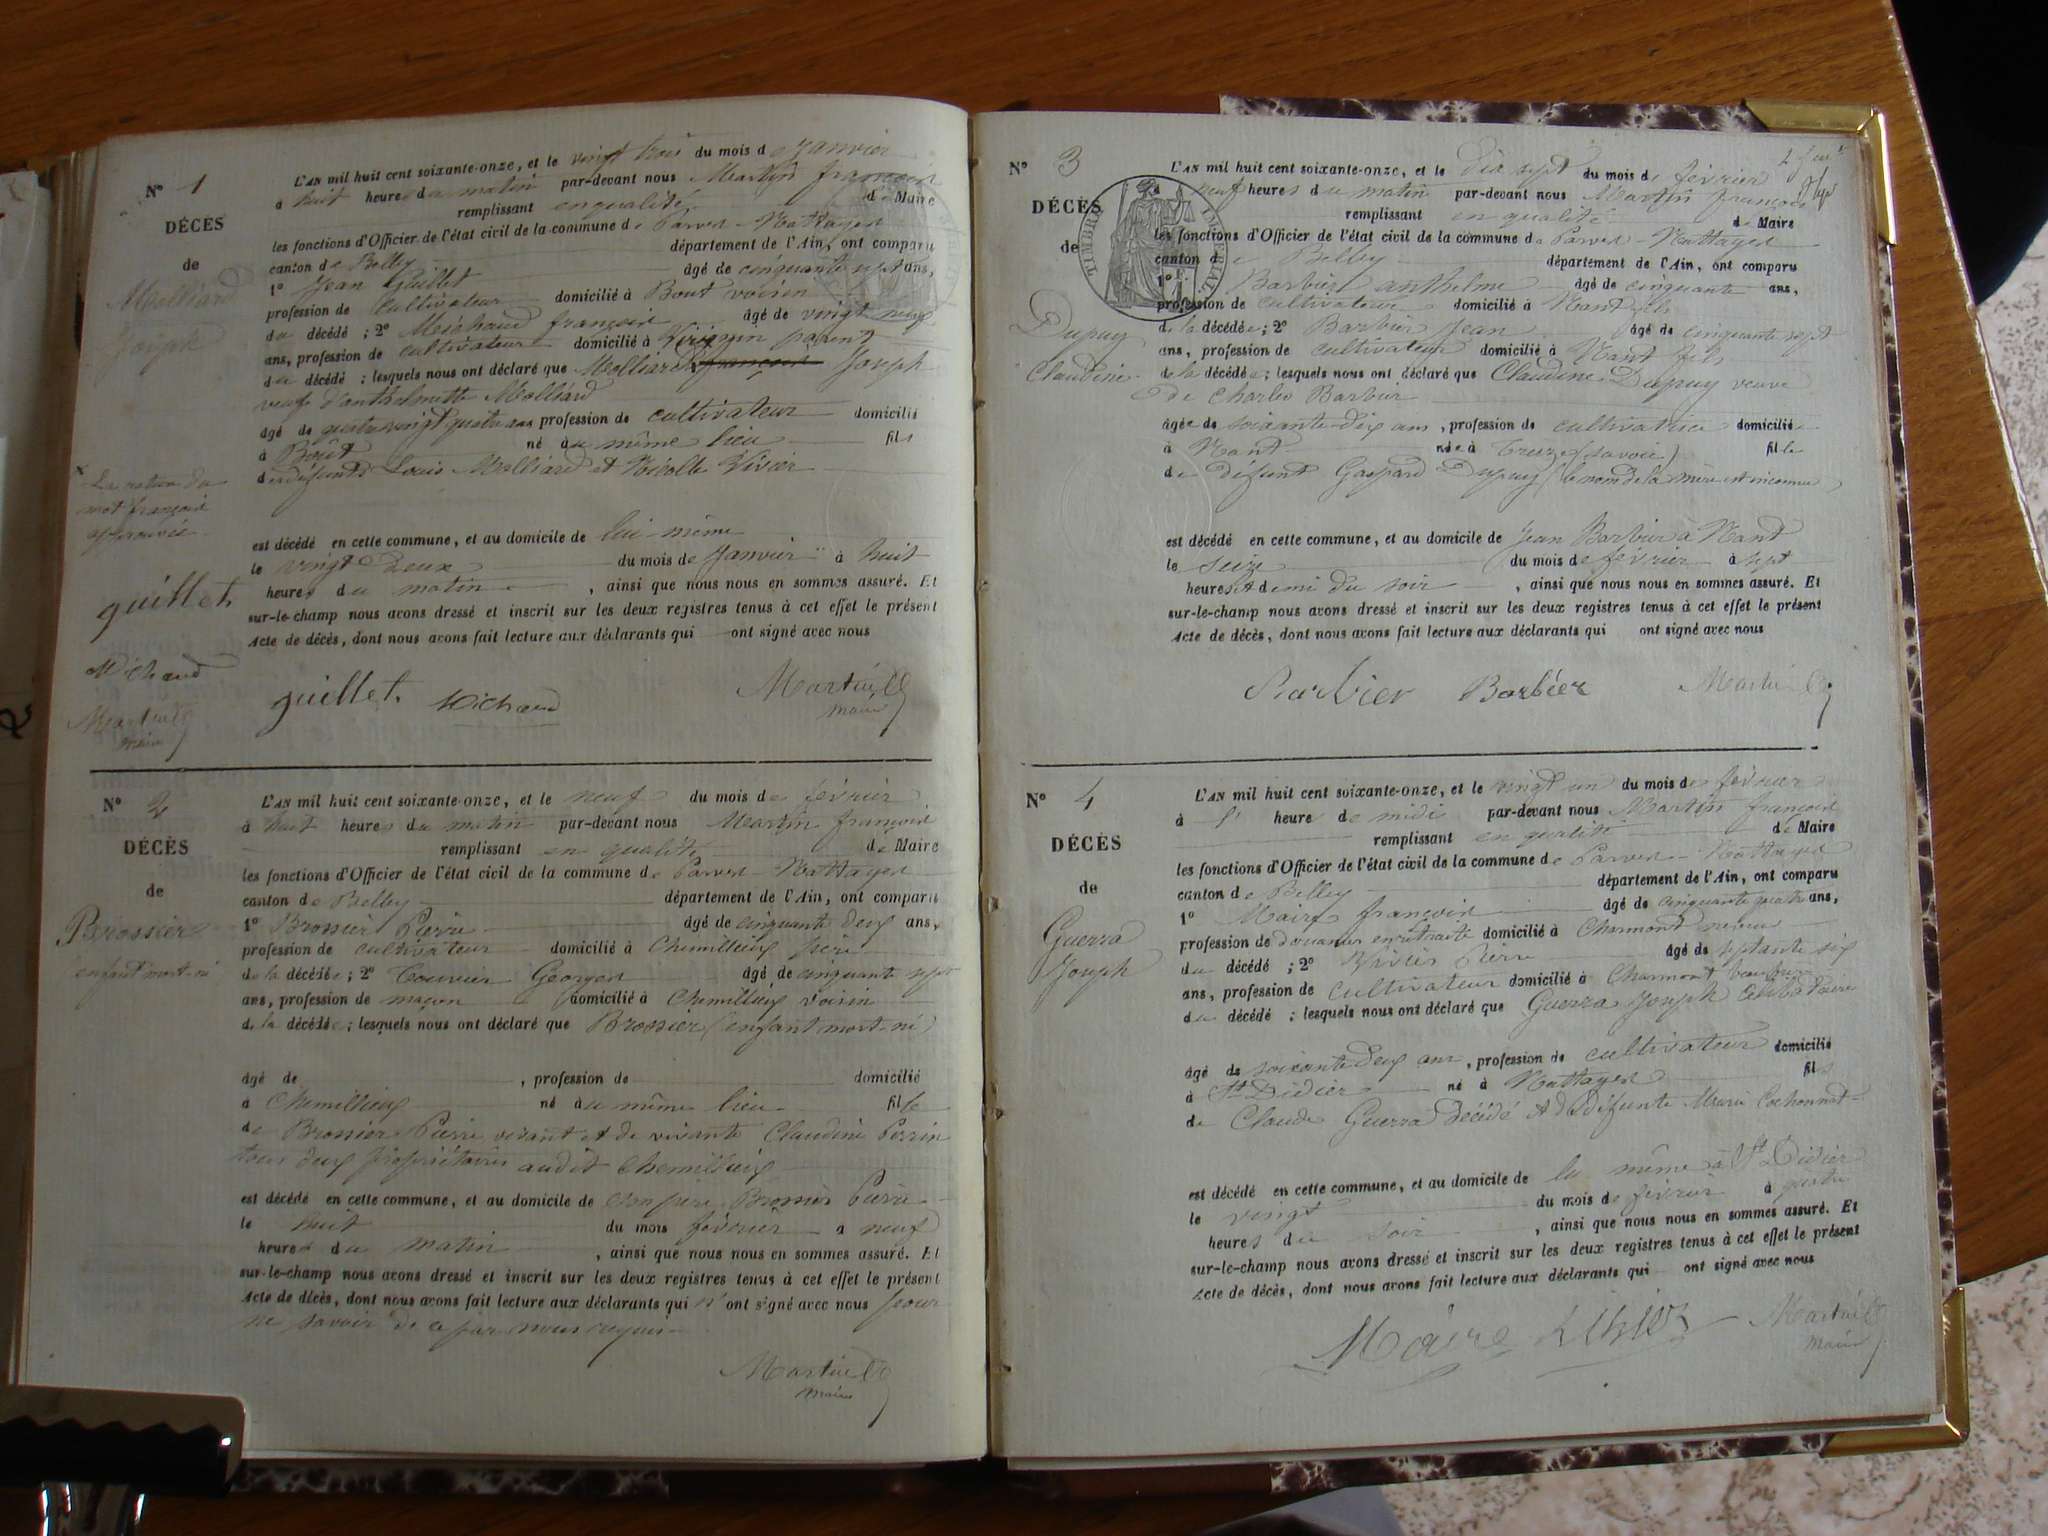 N° 1
DÉCÈS
de
Molliard
Joseph
L'AN mil huit cent soixante-onze, et le vingt trois du mois de Janvier
à huit heures du matin par-devant nous Martin françois
remplissant en qualité de Maire
les fonctions d'Officier de l'état civil de la commune de Parves-Nattages
canton de Belley département de l'Ain, ont comparu
1° Jean Guillet âgé de cinquante sept ans,
profession de cultivateur domicilié à Bout voisin
du décédé ; 2° Michaud françois âgé de vingt neuf
ans, profession de cultivateur domicilié à parent
du décédé ; lesquels nous ont déclaré que Molliard françois Joseph
veuf d'anthelmette Molliard
âgé de quatre vingt quatre ans profession de cultivateur domicilié
à Bout né au même lieu fils
des défunts Louis Molliard et Nicolle Vivier
est décédé en cette commune, et au domicile de lui-même
le vingt Deux du mois de Janvier à huit
heures du matin , ainsi que nous nous en sommes assuré. Et
sur-le-champ nous avons dressé et inscrit sur les deux registres tenus à cet effet le présent
Acte de décès, dont nous avons fait lecture aux déclarants qui ont signé avec nous
x La rature du
mot françois
approuvée
guillet
Michaud
Martin
maire
guillet Michaud Martin
maire
N° 2
DÉCÈS
de
Brossier
enfant mort-né
L'AN mil huit cent soixante-onze, et le neuf du mois de février
à huit heures du matin par-devant nous Martin françois
remplissant en qualité de Maire
les fonctions d'Officier de l'état civil de la commune de Parves-Nattages
canton de Belley département de l'Ain, ont comparu
1° Brossier Pierre âgé de cinquante deux ans,
profession de cultivateur domicilié à Chemillieux père
de la décédée ; 2° Touvier Georges âgé de cinquante sept
ans, profession de maçon domicilié à Chemillieux voisin
de la décédée ; lesquels nous ont déclaré que Brossier (enfant mort-né)
âgé de , profession de domicilié
à Chemillieux né au même lieu fille
de Brossier Pierre vivant et de vivante Claudine Perrin
tous deux propriétaires audit Chemillieux
est décédé en cette commune, et au domicile de son père Brossier Pierre
le huit du mois février à neuf
heures du matin , ainsi que nous nous en sommes assuré. Et
sur-le-champ nous avons dressé et inscrit sur les deux registres tenus à cet effet le présent
Acte de décès, dont nous avons fait lecture aux déclarants qui n'ont signé avec nous pour
ne savoir de ce par nous requis
Martin
maire
N° 3
DÉCÈS
de
Dupuy
Claudine
TIMBRE IMPÉRIAL
L'AN mil huit cent soixante-onze, et le Dix sept du mois de février
à neuf heures du matin par-devant nous Martin françois
remplissant en qualité de Maire
les fonctions d'Officier de l'état civil de la commune de Parves-Nattages
canton de Belley département de l'Ain, ont comparu
1° Barbier anthelme âgé de cinquante ans,
profession de cultivateur domicilié à Nant fils
de la décédée ; 2° Barbier Jean âgé de cinquante sept
ans, profession de cultivateur domicilié à Nant fils
de la décédée ; lesquels nous ont déclaré que Claudine Dupuy veuve
de Charles Barbier
âgée de soixante-dix ans , profession de cultivatrice domiciliée
à Nant née à (savoie) fille
de Défunt Gaspard Dupuy (le nom de la mère est inconnu)
est décédé en cette commune, et au domicile de Jean Barbier à Nant
le seize du mois de février à sept
heures et demi du soir , ainsi que nous nous en sommes assuré. Et
sur-le-champ nous avons dressé et inscrit sur les deux registres tenus à cet effet le présent
Acte de décès, dont nous avons fait lecture aux déclarants qui ont signé avec nous
Barbier Barbier Martin
N° 4
DÉCÈS
de
Guerra
Joseph
L'AN mil huit cent soixante-onze, et le vingt un du mois de février
à heure de midi par-devant nous Martin françois
remplissant en qualité de Maire
les fonctions d'Officier de l'état civil de la commune de Parves-Nattages
canton de Belley département de l'Ain, ont comparu
1° Maire françois âgé de cinquante quatre ans,
profession de douanier en retraite domicilié à Charmont neveu
du décédé ; 2° Pierre âgé de septante six
ans, profession de cultivateur domicilié à Charmont beau frère
du décédé ; lesquels nous ont déclaré que Guerra Joseph Célibataire
âgé de soixante deux ans , profession de cultivateur domicilié
à St Didier né à Nattages fils
de Claude Guerra Décédé et de défunte Marie Cochonnat
est décédé en cette commune, et au domicile de lui même à St Didier
le vingt du mois de février à quatre
heures du soir , ainsi que nous nous en sommes assuré. Et
sur-le-champ nous avons dressé et inscrit sur les deux registres tenus à cet effet le présent
Acte de décès, dont nous avons fait lecture aux déclarants qui ont signé avec nous
Maire Martin
maire